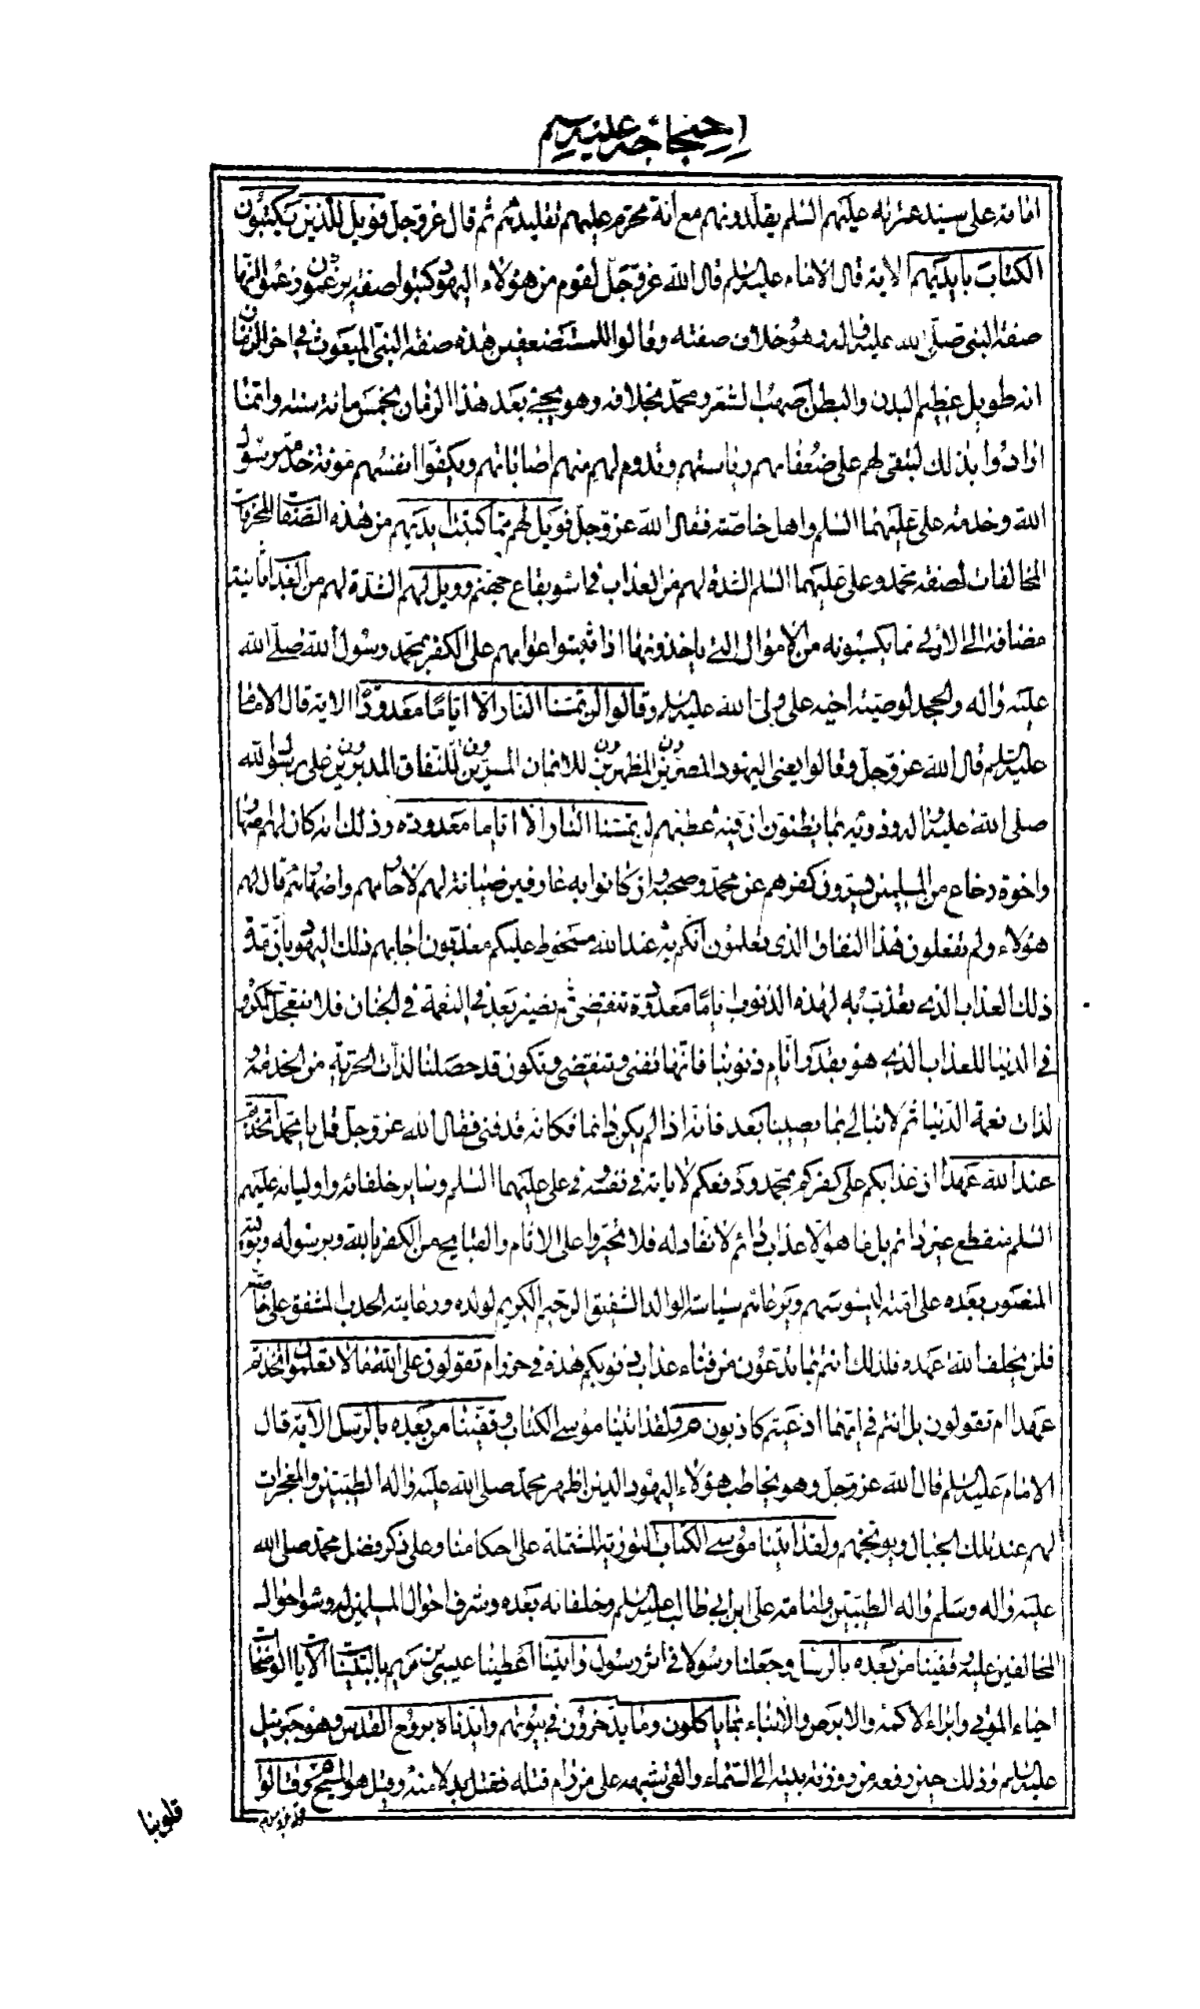 احتجاجه عليه السلم
امامة على سيد عترته عليهم السلم يقلدونهم مع انه محرم عليهم تقليدهم ثم قال عز وجل فويل للذين يكتبون
الكتاب بايديهم الاية قال الامام عليه السلم قال الله عز وجل لقوم من هؤلاء اليهود كتبوا صفة يزعمون زعموا انها
صفة النبى صلى الله عليه واله وهو خلاف صفته وقالوا للمستضعفين هذه صفة النبى المبعوث فى اخر الزمان
انه طويل عظيم البدن والبطن اصهب الشعر ومحمد بخلافه وهو يجئ بعد هذا الزمان بخمس مائة سنة وانما
ارادوا بذلك لتبقى لهم على ضعفائهم رياستهم وتدوم لهم منهم اصاباتهم ويكفوا انفسهم مؤنة خدمة رسول
الله وخدمة على عليهما السلم واهل خاصته فقال الله عز وجل فويل لهم مما كتبت ايديهم من هذه الصفات المحرفات
المخالفات لصفة محمد وعلى عليهما السلم الشدة لهم من العذاب فى اسوء بقاع جهنم وويل لهم الشدة لهم من العذاب ثانية
مضافة الى الاولى مما يكسبونه من الاموال التى ياخذونها اذا ثبتوا عوامهم على الكفر بمحمد رسول الله صلى الله
عليه واله والجحد لوصيته اخيه على ولى الله عليه السلم وقالوا لن تمسنا النار الا اياما معدودة الاية قال الامام
عليه السلم قال الله عز وجل وقالوا يعنى اليهود المصرين المظهرين للايمان المسرين للنفاق المدبرين على رسول الله
صلى الله عليه واله وذويه بما يظنون ان فيه عطبهم لن تمسنا النار الا اياما معدودة وذلك انه كان لهم اصهار
واخوة رضاع من المسلمين يسرون كفرهم عن محمد وصحبه وان كانوا به عارفين صيانة لهم لارحامهم واصهارهم قال لهم
هؤلاء ولم تفعلون هذا النفاق الذى تعلمون انكم به عند الله مسخوط عليكم معذبون اجابهم ذلك اليهود بان مدة
ذلك العذاب الذى نعذب به لهذه الذنوب اياما معدودة تنقضى ثم نصير بعد فى النعمة فى الجنان فلا نتعجل المكروه
فى الدنيا للعذاب الذى هو بقدر ايام ذنوبنا فانها تفنى وتنقضى ونكون قد حصلنا لذات الحرية من الخدمة و
لذات نعمة الدنيا ثم لا نبالى بما يصيبنا بعد فانه اذا لم يكن دائما فكانه قد فنى فقال الله عز وجل قل يا محمد اتخذتم
عند الله عهدا ان عذابكم على كفركم بمحمد ودفعكم لاياته فى نفسه فى على عليهما السلم وساير خلفائه واوليائه عليهم
السلم منقطع غير دائم بل ما هو الا عذاب دائم لا نفاد له فلا تجتروا على الاثام والقبايح من الكفر بالله وبرسوله وبوليه
المنصوب بعده على امته ليسوسهم ويرعاهم سياسة الوالد الشفيق الرحيم الكريم لولده ورعاية الحدب المشفق على خاصته
فلن يخلف الله عهده فلذلك انتم بما تدعون من فناء عذاب ذنوبكم هذه فى حرز ام تقولون على الله ما لا تعلمون اتخذتم
عهدا ام تقولون بل انتم فى ايهما ادعيتم كاذبون ولقد اتينا موسى الكتاب وقفينا من بعده بالرسل الاية قال
الامام عليه السلم قال الله عز وجل وهو يخاطب هؤلاء اليهود الذين اظهر محمد صلى الله عليه واله الطيبين المعجزات
لهم عند تلك الجبال ويوبخهم ولقد اتينا موسى الكتاب التورية المشتملة على احكامنا وعلى ذكر فضل محمد صلى الله
عليه واله وسلم واله الطيبين وامامة على ابن ابى طالب عليه السلم وخلفائه بعده وشرف احوال المسلمين له وسوء احوال
المخالفين عليه وقفينا من بعده بالرسل وجعلنا رسولا فى اثر رسول واتينا اعطينا عيسى بن مريم البينات الايات الواضحات
احياء الموتى وابراء الاكمه والابرص والانباء بما ياكلون وما يدخرون فى بيوتهم وايدناه بروح القدس وهو جبرئيل
عليه السلم وذلك حين رفعه من روزنة بيته الى السماء والقى شبهه على من رام قتله فقتل بدلا منه وقيل هو المسيح وقالوا
قلوبنا